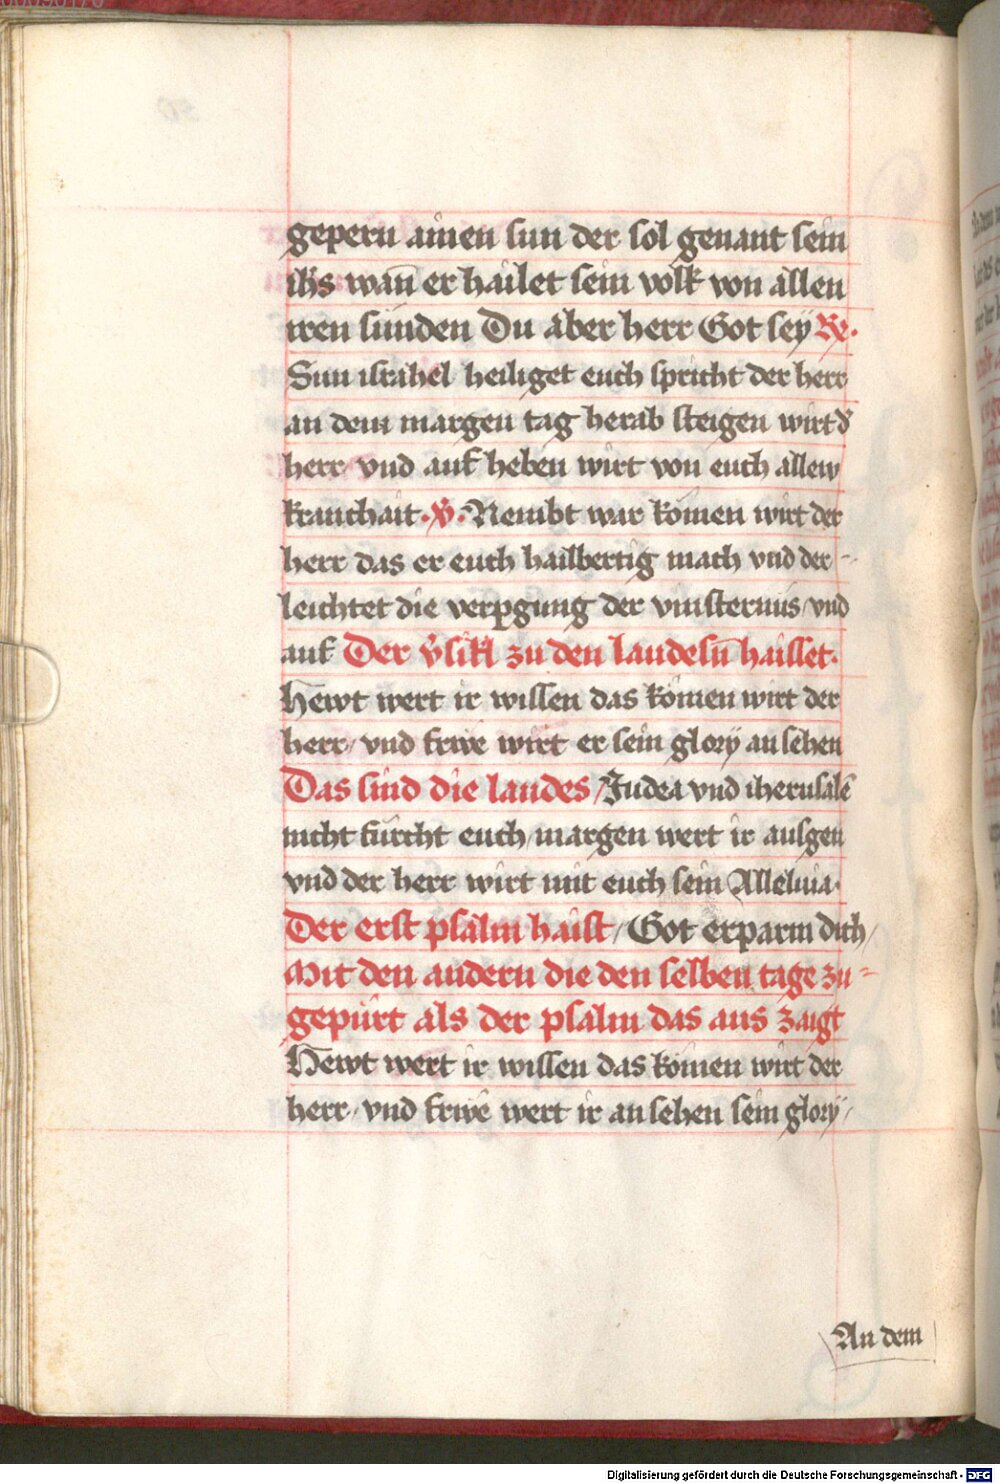 gepern ainen sun der sol genant sein
ih̄s wan̄ er hailet sein volk von allen
iren sünden Du aber herr Got sey Re.
Sun israhel heiliget euch spricht der herr
an dem margen tag herab steigen wirt d̕
herr / vnd auf heben wirt von euch allew
kranchait .v̕. Nembt war komen wirt der
herr das er euch hailbertig mach vnd der -
leuchtet die verpꝛgung der vinsternus / vnd
auf Der v̕sikl zu den laudesn̄ haisset.
Hewt wert ir wissen das komen wirt der
herr / vnd frwe wirt er sein glory an sehen
Das sind die laudes / Judea vnd iherusalē
nicht fürcht euch / margen wert ir ausgen
vnd der herr wirt mit euch sein Alleluia.
Der erst psalm haist / Got erparm dich /
Mit den andern die den selben tage zu =
gepürt als der psalm das aus zaigt
Hewt wert ir wissen das komen wirt der
herr / vnd frwe wert ir an sehen sein glory /
An dem
Digitalisierung gefördert durch die Deutsche Forschungsgemeinschaft - DFG